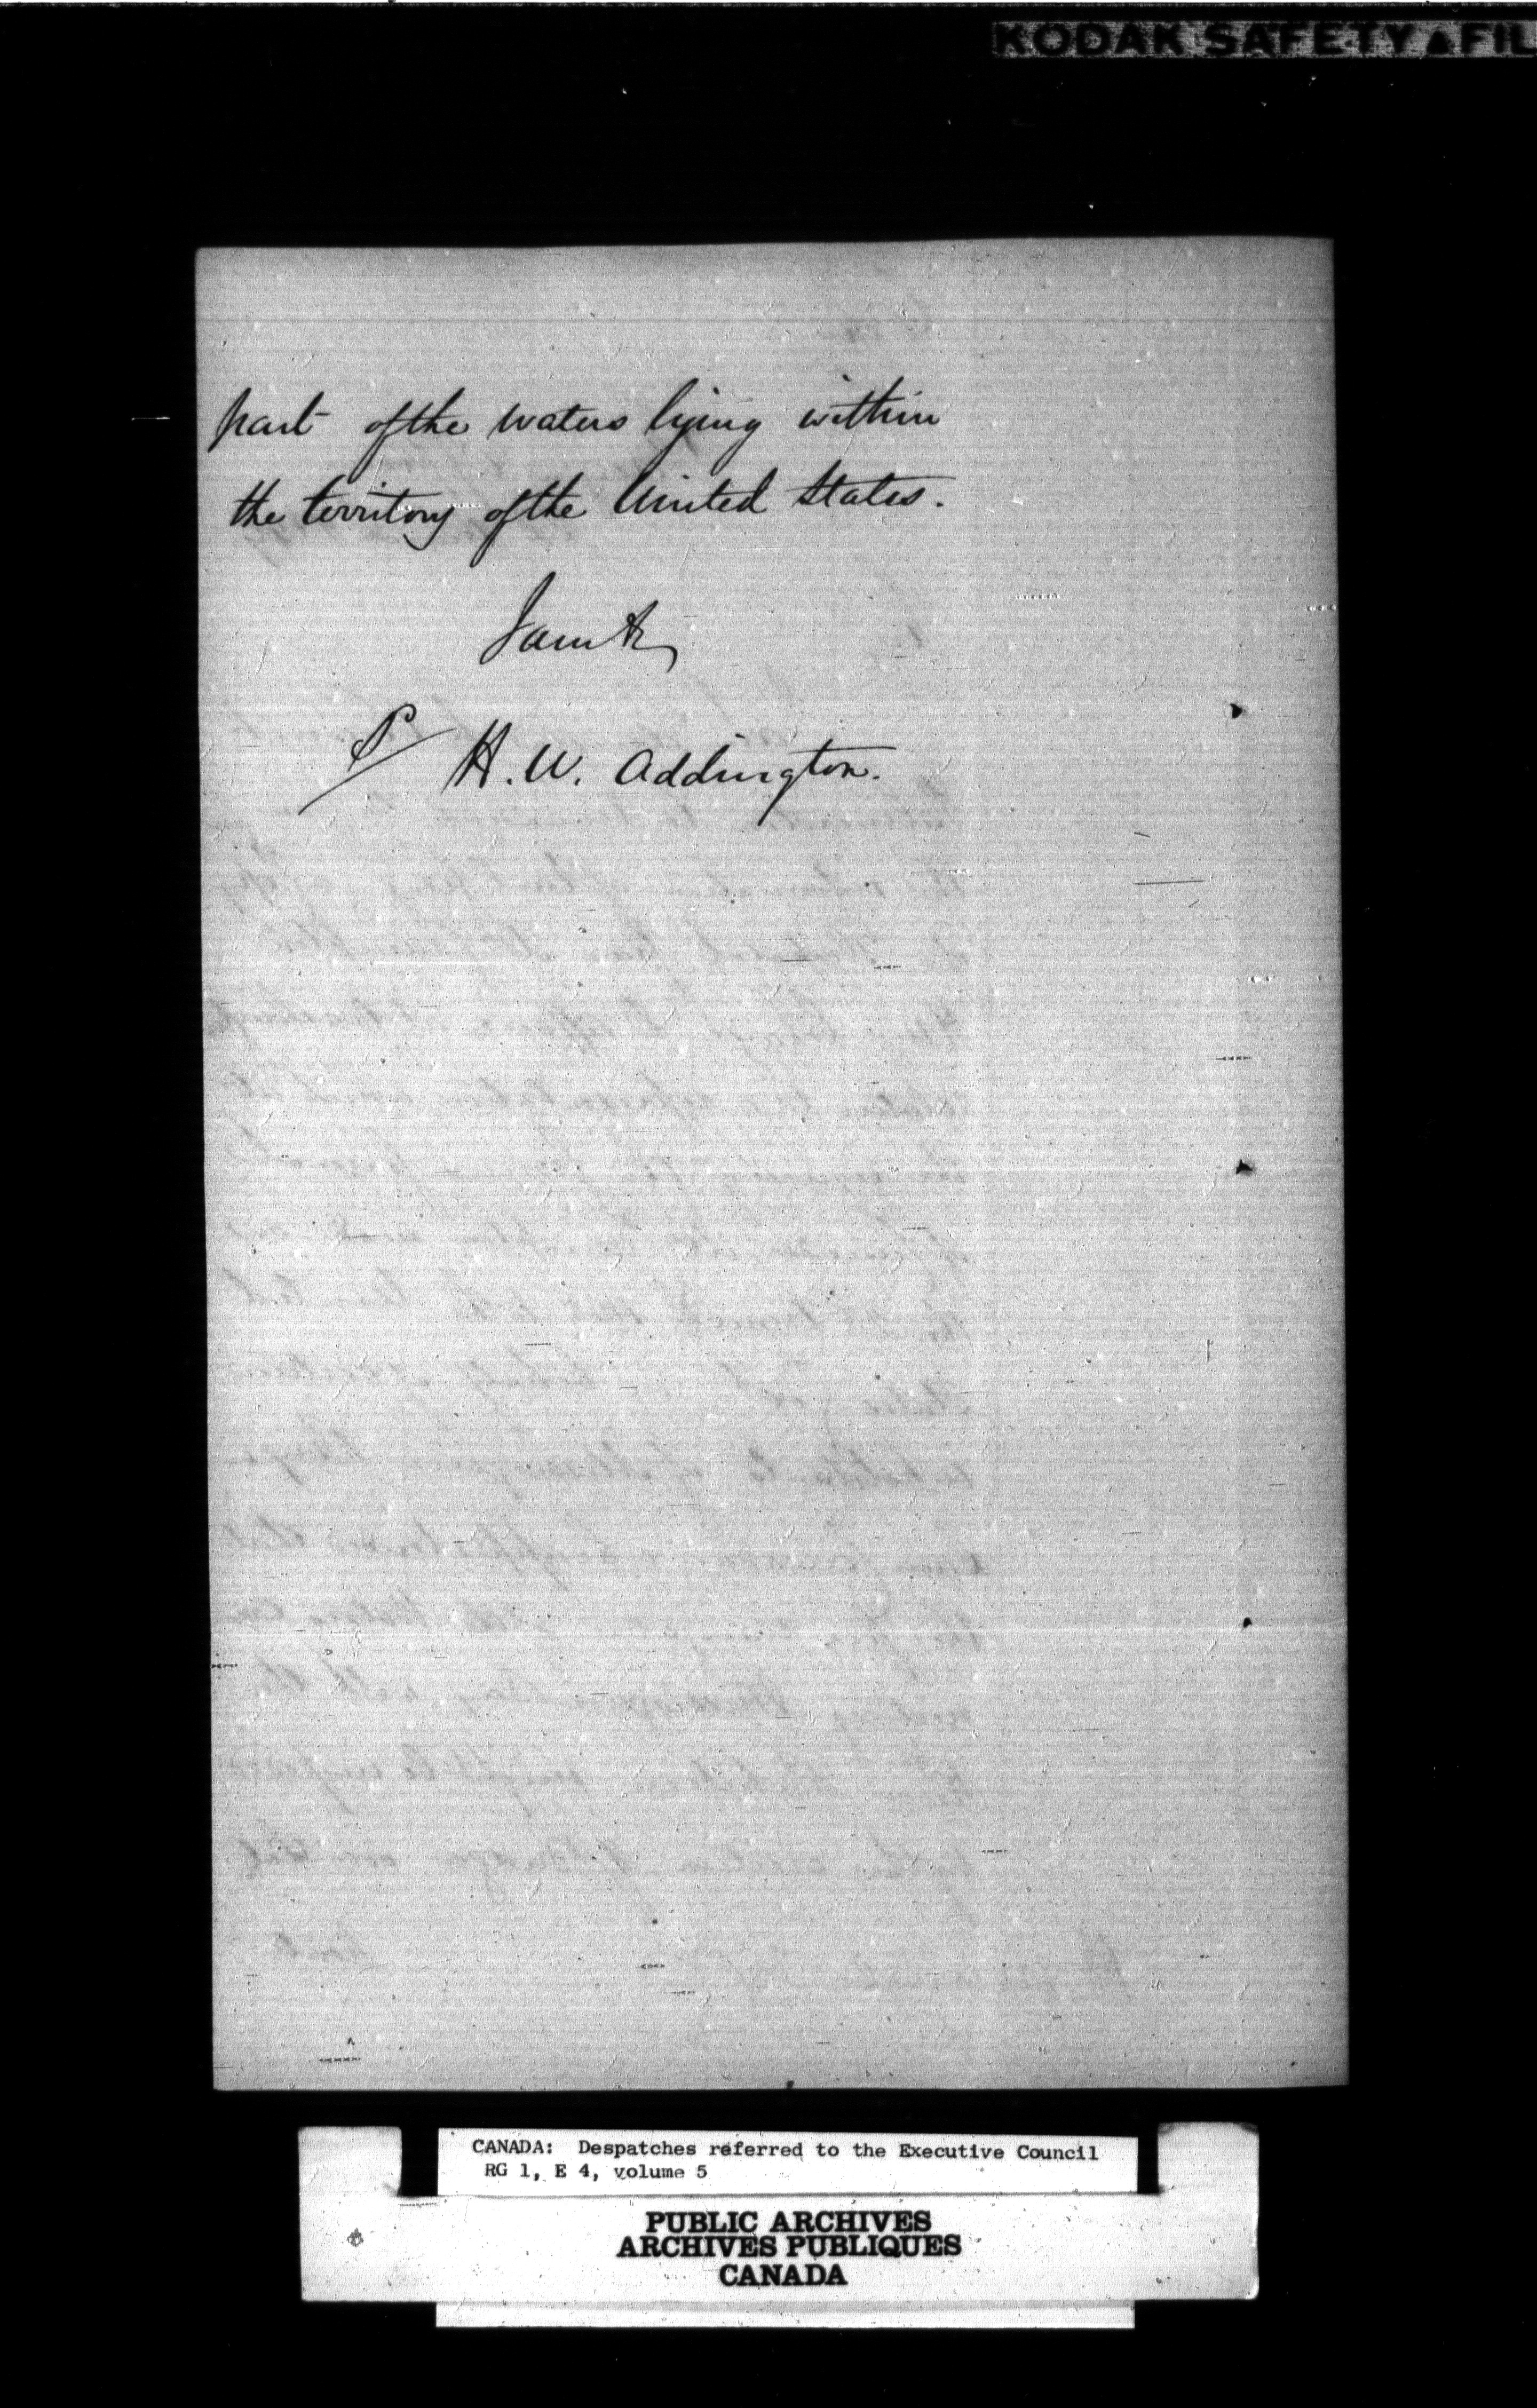 KODAK SAFETY FIL
part of the waters lying within
the territory of the United States.
I am &c
H. W. Addington.
CANADA: Despatches referred to the Executive Council
RG 1, E 4, volume 5
PUBLIC ARCHIVES
ARCHIVES PUBLIQUES
CANADA